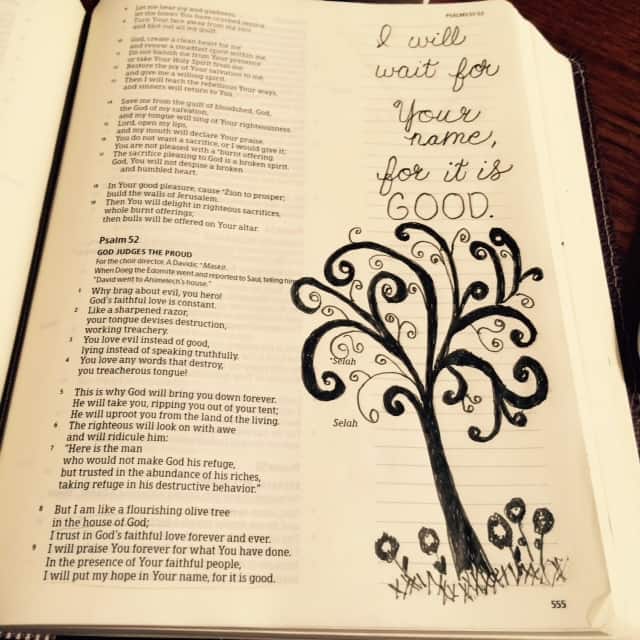 Let me hear joy and gladness;
let the bones You have crushed rejoice.
Turn Your face away from my sins
and blot out all my guilt.
God, create a clean heart for me
and renew a steadfast spirit within me.
Do not banish me from Your presence
or take Your Holy Spirit from me.
Restore the joy of Your salvation to me,
and give me a willing spirit.
Then I will teach the rebellious Your ways,
and sinners will return to You.
14 Save me from the guilt of bloodshed, God,
the God of my salvation,
and my tongue will sing of Your righteousness.
15 Lord, open my lips,
and my mouth will declare Your praise.
16 You do not want a sacrifice, or I would give it;
You are not pleased with a burnt offering.
17 The sacrifice pleasing to God is a broken spirit.
God, You will not despise a broken
and humbled heart.
18 In Your good pleasure, cause Zion to prosper;
build the walls of Jerusalem.
19 Then You will delight in righteous sacrifices,
whole burnt offerings;
then bulls will be offered on Your altar.
Psalm 52
GOD JUDGES THE PROUD
For the choir director. A Davidic Maskil.
When Doeg the Edomite went and reported to Saul, telling him
"David went to Ahimelech's house."
1 Why brag about evil, you hero!
God's faithful love is constant.
2 Like a sharpened razor,
your tongue devises destruction,
working treachery.
3 You love evil instead of good,
lying instead of speaking truthfully.
*Selah
4 You love any words that destroy,
you treacherous tongue!
5 This is why God will bring you down forever.
He will take you, ripping you out of your tent;
He will uproot you from the land of the living.
Selah
6 The righteous will look on with awe
and will ridicule him:
7 "Here is the man
who would not make God his refuge,
but trusted in the abundance of his riches,
taking refuge in his destructive behavior."
8 But I am like a flourishing olive tree
in the house of God;
I trust in God's faithful love forever and ever.
9 I will praise You forever for what You have done.
In the presence of Your faithful people,
I will put my hope in Your name, for it is good.
PSALMS 51:52
I will
wait for
Your
name,
for it is
GOOD.
555